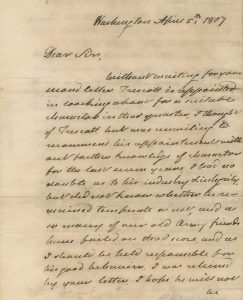 Washington April 5th, 1807
Dear Sir,
Without waiting for your
second letter Truscott is appointed
in looking about for a suitable
character in that quarter, I thought
of Truscott but was unwilling to
recommend his appointment with
out further knowledge of character
for the last seven years, I had no
doubt as to his industry & integrity
but did not know whether he re
mained temperate or not, and as
so many of our old Army friends
have failed on that score, and as
I should be held responsible for
his good behaviour, I was relieved
by your letter, I hope he will not
be